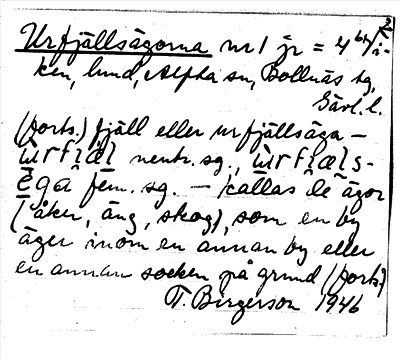 2
Urfjällsägorna nr 1 jr = 4 by/i-
ken, lund, Alfta sn, Bollnäs tg,
Gävl. l.
(forts.) fjäll eller urfjällsäga –
ùrfjäl neutr. sg., ùrfjæls-
ega fem. sg. – kallas de ägor
(åker, äng, skog), som en by
äger inom en annan by eller
en annan socken på grund (forts.)
T. Bergerson 1946